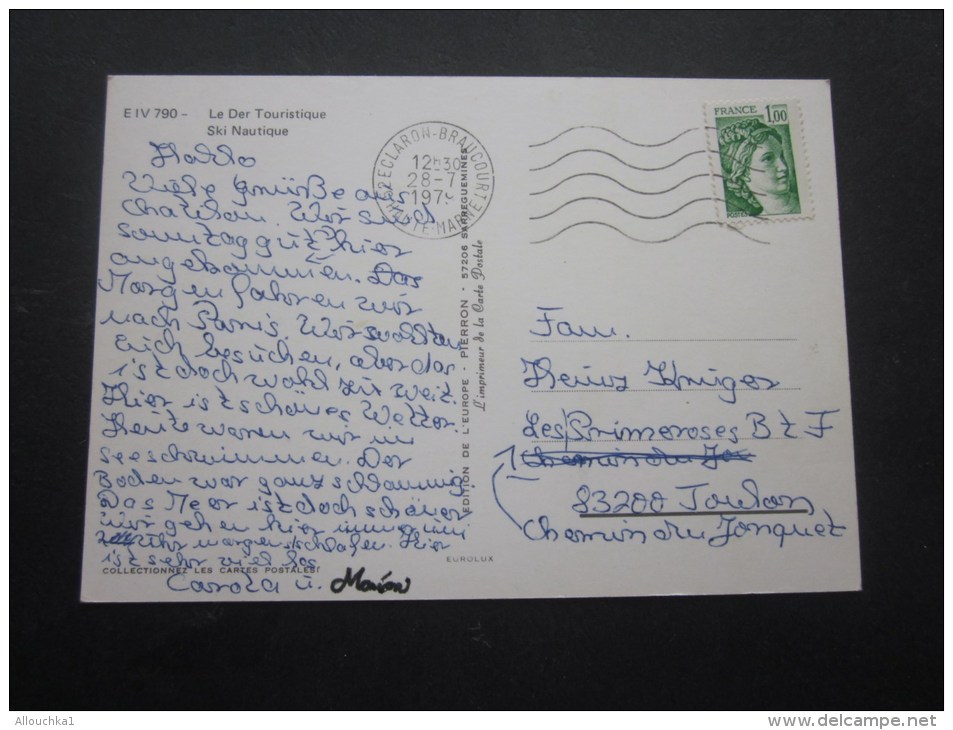 E IV 790 - Le Der Touristique
Ski Nautique
Hallo
Viele Grüße aus
Wir sind
sonntag gut hier
angekommen. Das
Morgen fahren wir
nach Paris Wir wollten
Euch besuchen, aber das
ist doch wohl zu weit.
Hier ist schönes Wetter.
Heute waren wir im
see schwimmen. Der
Boden war ganz schlammig
Das Meer ist doch schöner
wir gehen hier immer um
Uhr morgens schlafen. Hier
ist sehr viel los
Carola u. Marion
COLLECTIONNEZ LES CARTES POSTALES!
52 ECLARON-BRAUCOURT
12h30
28-7
1979
HAUTE-MARNE
EDITION DE L'EUROPE - PIERRON - 57206 SARREGUEMINES
L'imprimeur de la Carte Postale
EUROLUX
FRANCE 1,00
POSTES
Fam.
Heinz Krüger
Les Primeroses B t F
Chemin du Jo
83200 Toulon
Chemin du Jonquet
Allouchka1
www.delcampe.net